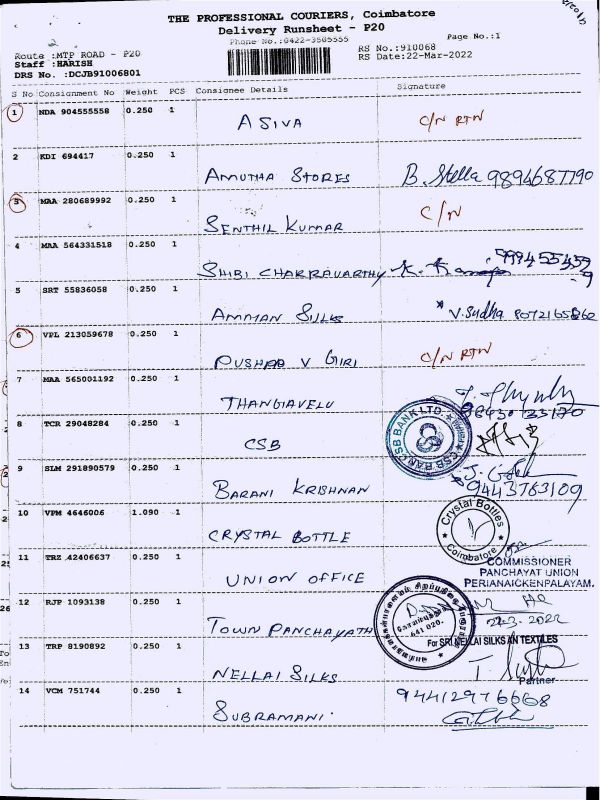 THE PROFESSIONAL COURIERS, Coimbatore
Delivery Runsheet - P20
Phone No.:0422-3505555
Page No.:1
Route :MTP ROAD - P20
RS No.:910068
Staff :HARISH
RS Date:22-Mar-2022
DRS No. :DCJB91006801
S No Consignment No Weight PCS Consignee Details Signature
1 NDA 904555558 0.250 1
A SIVA C/N RTN
2 KDI 694417 0.250 1
AMUTHA STORES B. Stella 9894687790
3 MAA 280689992 0.250 1
SENTHIL KUMAR C/N
4 MAA 564331518 0.250 1
SHIBI CHAKRAVARTHY K.
5 SRT 55836058 0.250 1
AMMAN SILKS V. Sudha
6 VPL 213059678 0.250 1
PUSHPA V GIRI C/N RTN
7 MAA 565001192 0.250 1
THANGIAVELU
8 TCR 29048284 0.250 1
CSB
CSB BANK LTD.
9 SLM 291890579 0.250 1
BARANI KRISHNAN 9443763109
10 VPM 4646006 1.090 1
CRYSTAL BOTTLE
Crystal Bottles
Coimbatore
11 TRZ 42406637 0.250 1
UNION OFFICE
COMMISSIONER
PANCHAYAT UNION
PERIANAICKENPALAYAM.
12 RJP 1093138 0.250 1
TOWN PANCHAYATH
641 020.
22-3-2022
13 TRP 8190892 0.250 1
NELLAI SILKS
For SRI NELLAI SILKS AN TEXTILES
Partner
14 VCM 751744 0.250 1
SUBRAMANI.